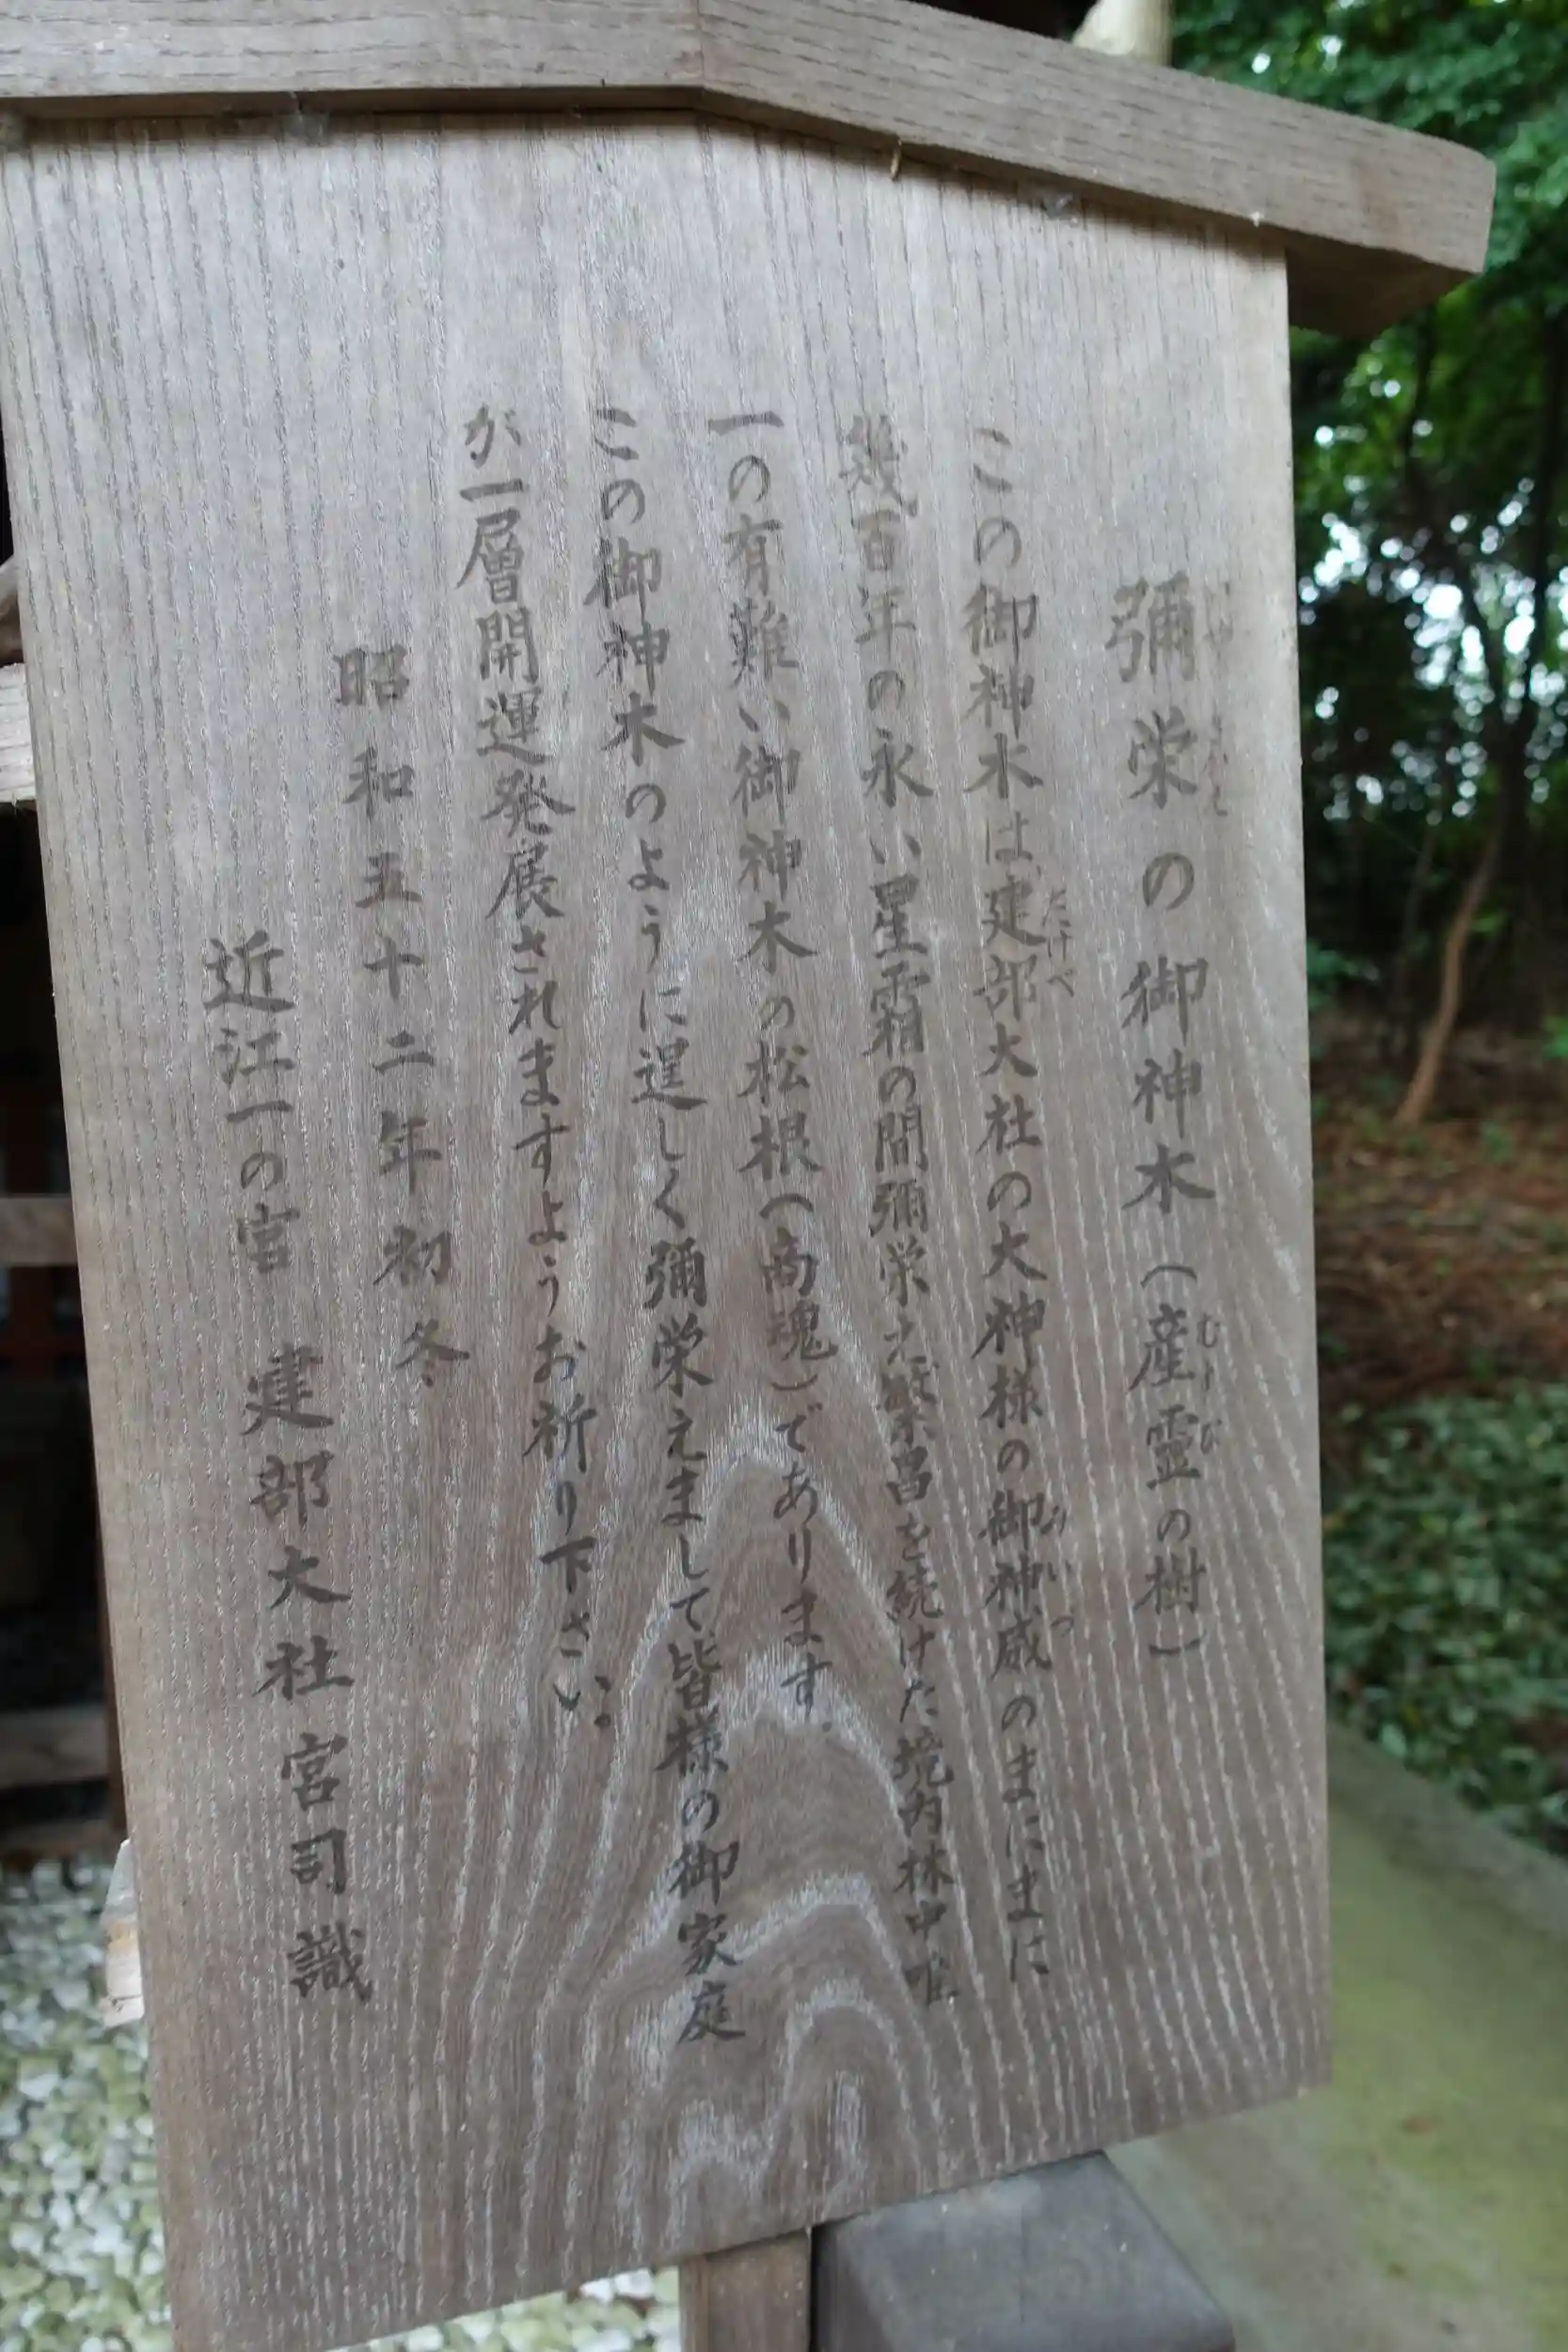 彌栄の御神木（産霊の樹）
この御神木は建部大社の大神様の御神威のまにまに
幾百年の永い星霜の間彌栄え繁昌を続けた境内林中唯
一の有難い御神木の松根（高魂）であります。
この御神木のように逞しく彌栄えまして皆様の御家庭
が一層開運発展されますようお祈り下さい。
昭和五十二年初冬
近江一の宮 建部大社宮司識
たけべ
むすび
みいつ